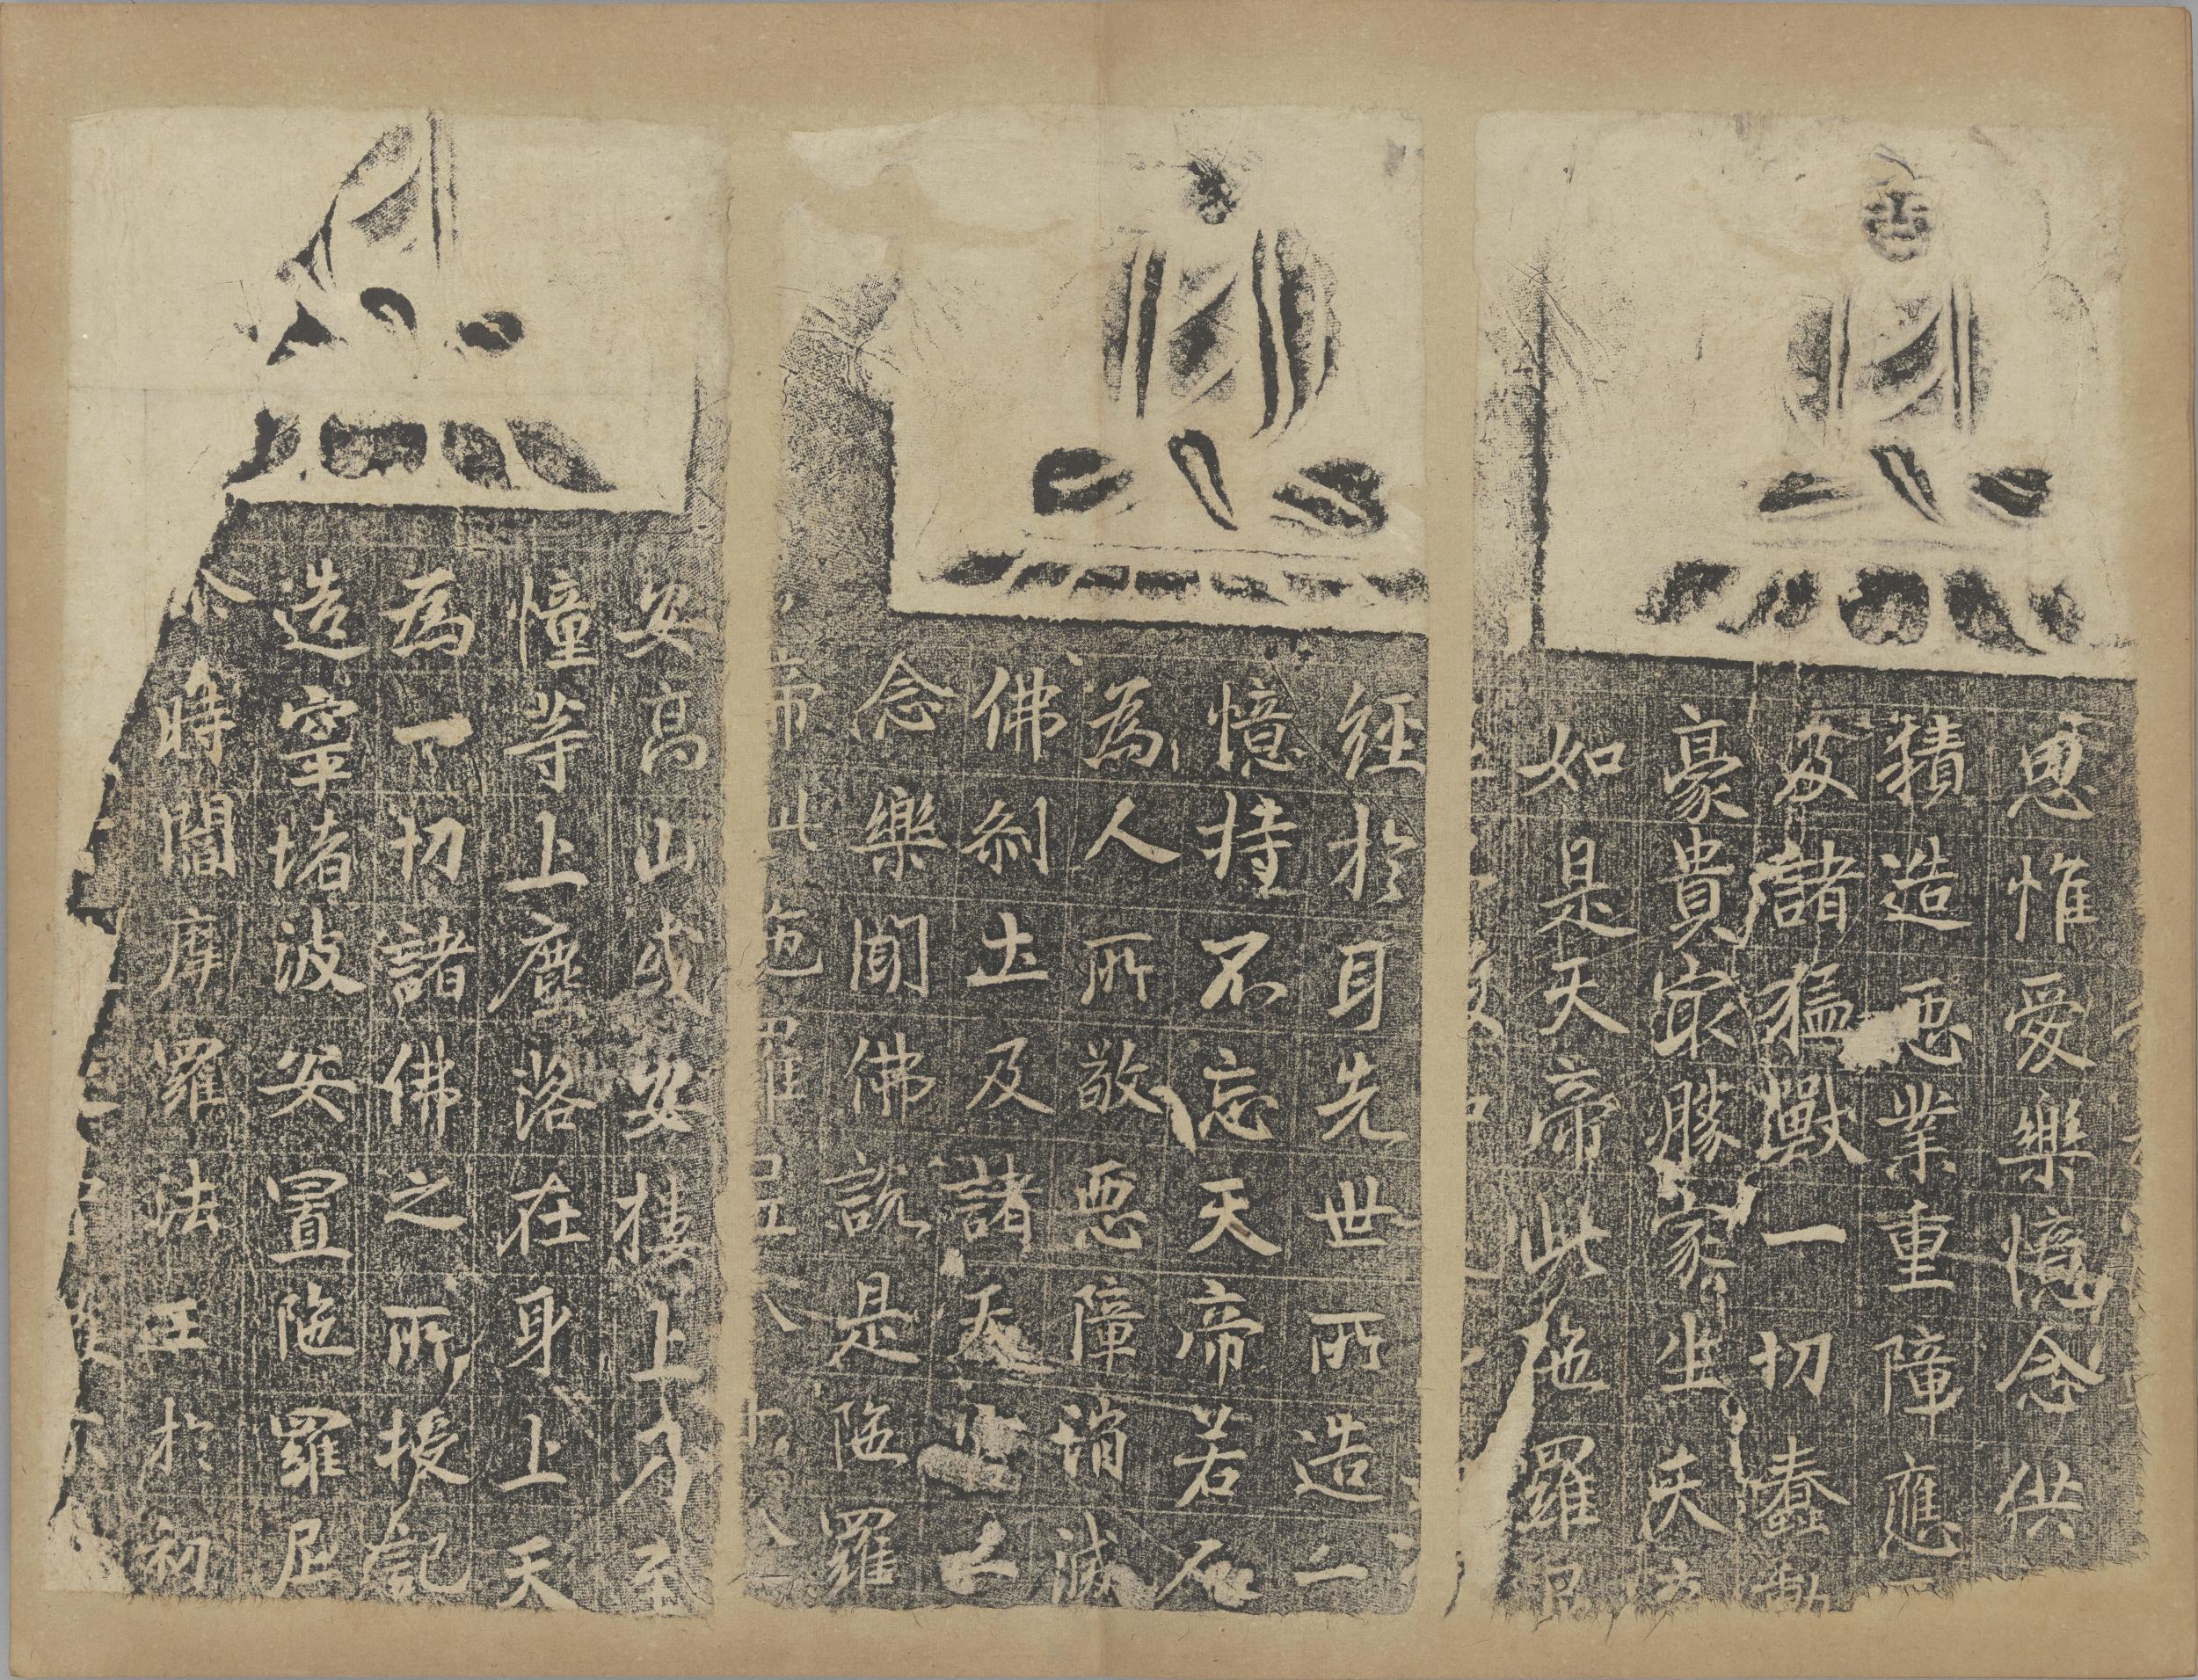 思惟受樂憶念供
積造惡業重障應
及諸猛獸一切蠢動
豪貴冣勝家生天
如是天帝此陁羅尼
經於耳先世所造一
憶持不忘天帝若
為人所敬惡障消滅
佛刹土及諸天
念樂聞佛説是陁羅
帝此陁羅尼八十八
安高山或安樓上乃至
憧等上塵落在身上天
為一切諸佛之所授記
造窣堵波安置陁羅尼
尒時閻摩羅法王於初